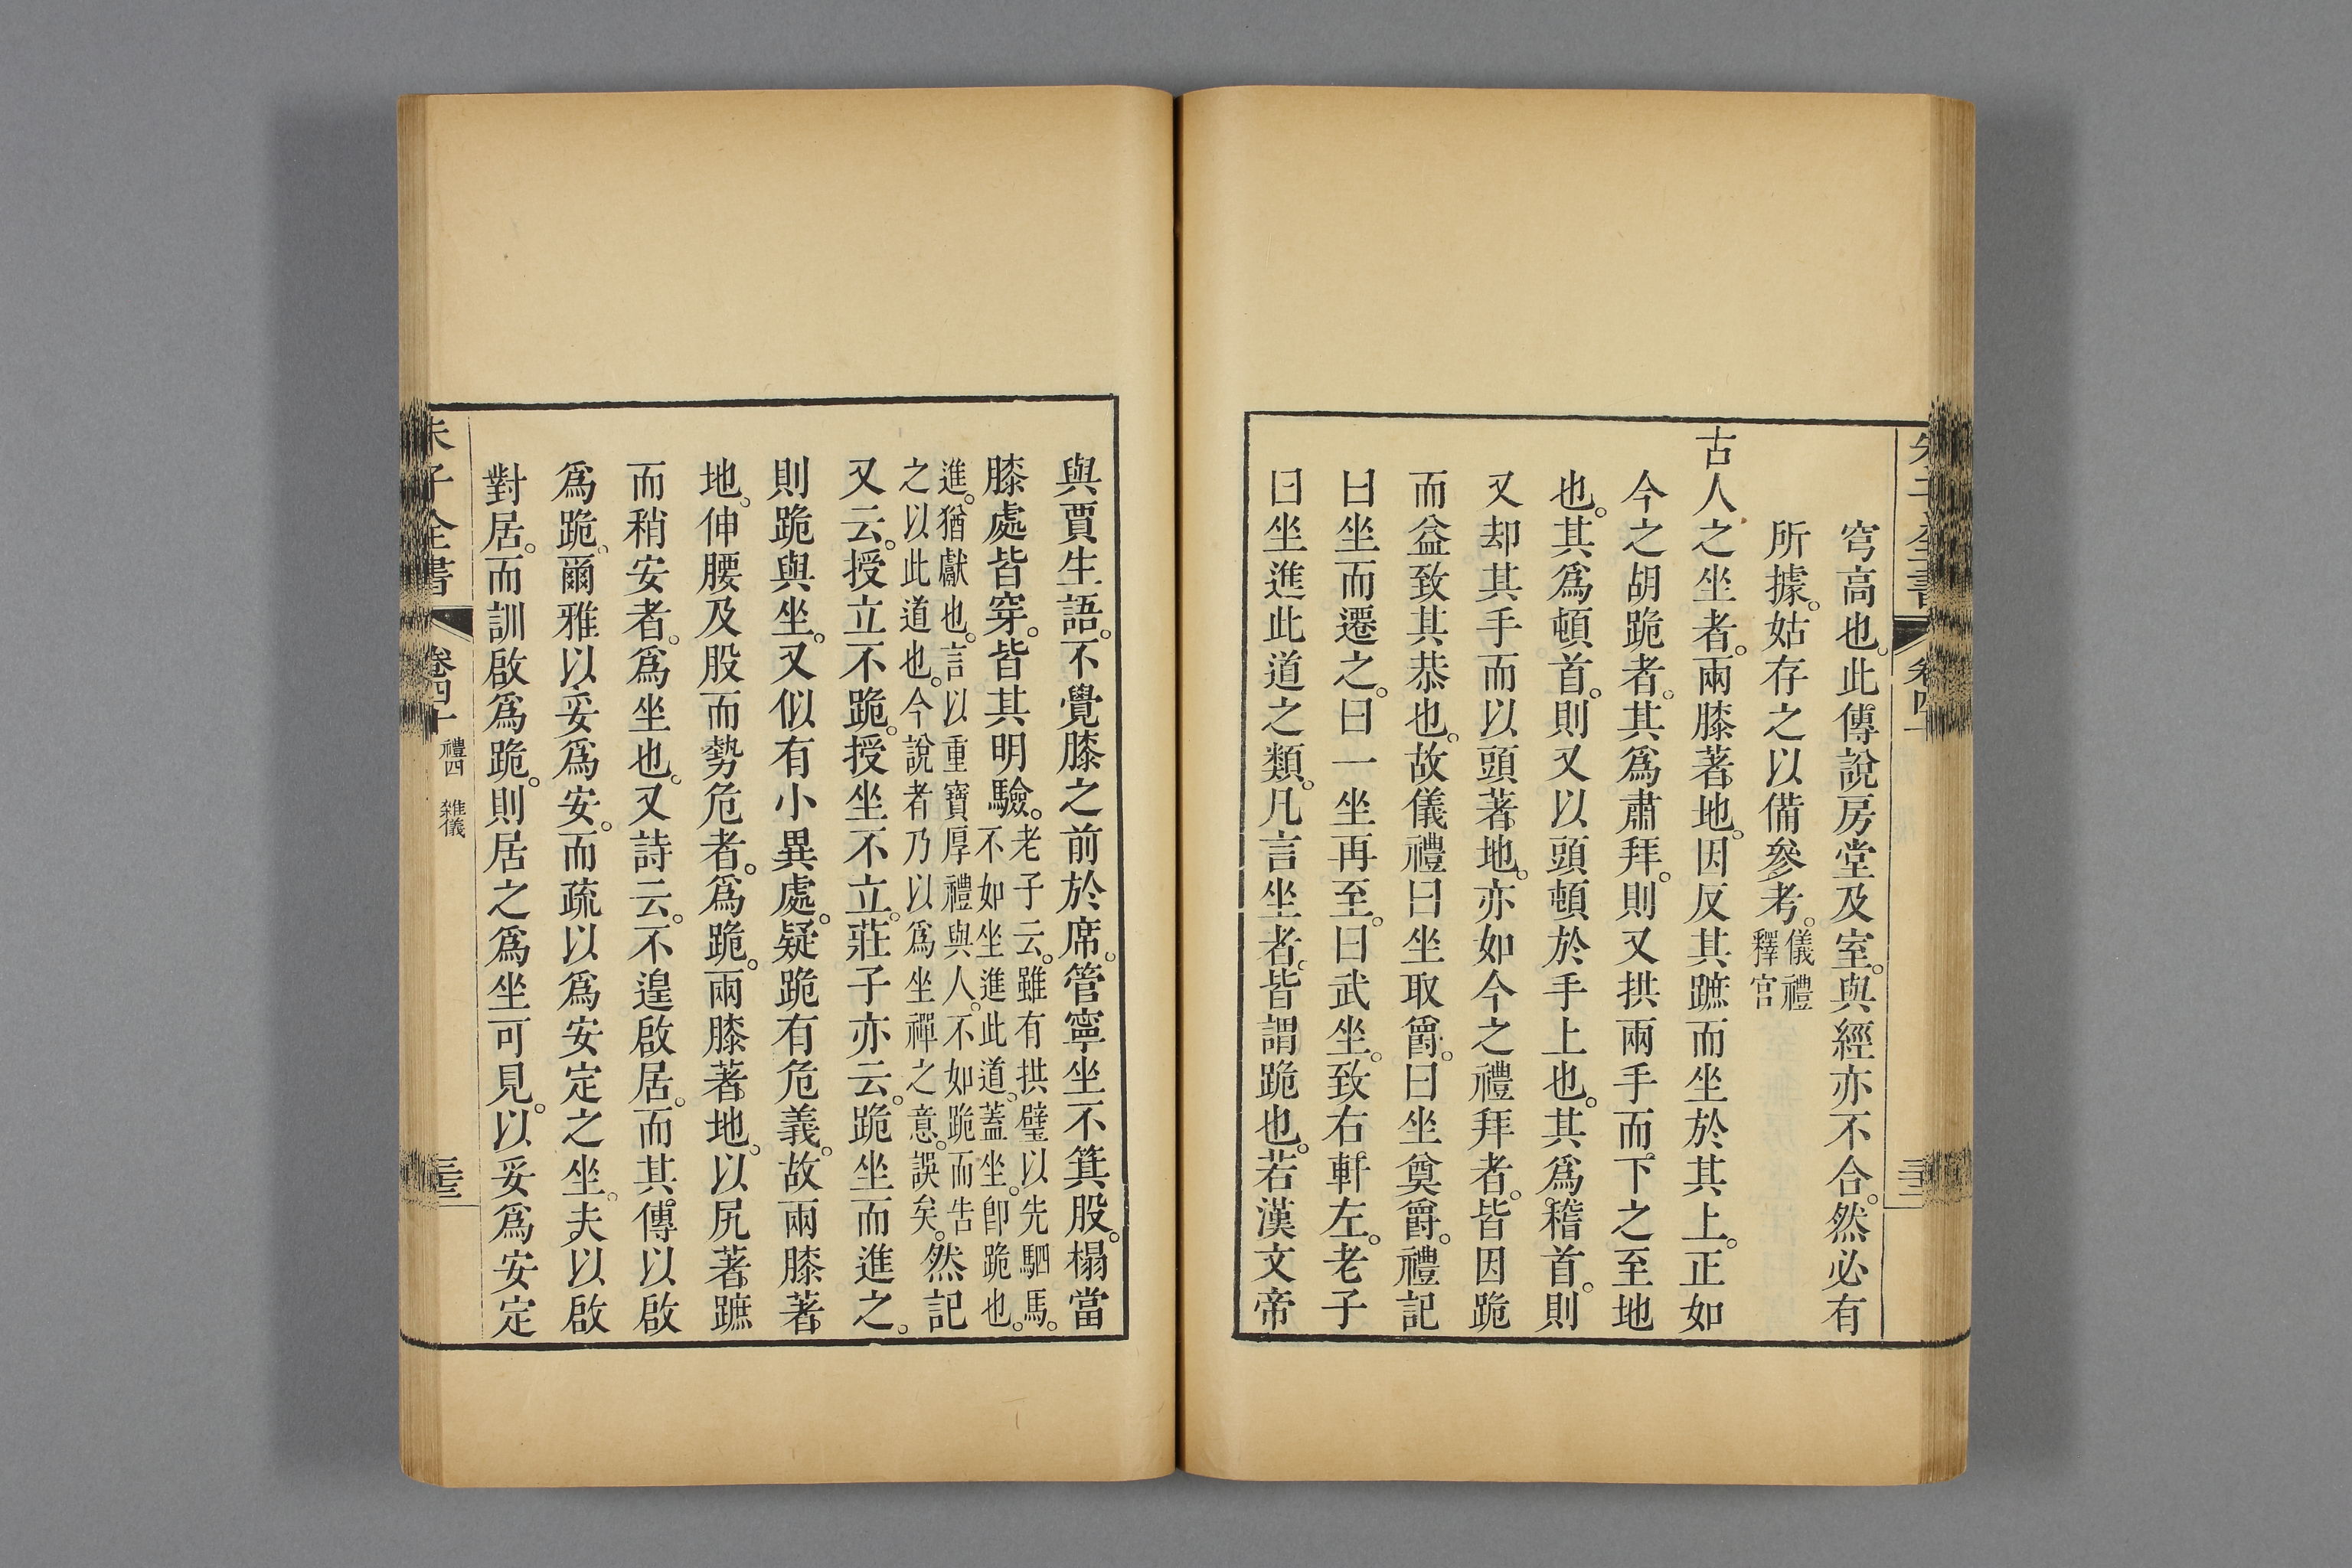 穹高也。此傳說房堂及室。與經亦不合。然必有
所據。姑存之以備參考。儀禮釋宮
古人之坐者。兩膝著地。因反其蹠而坐於其上。正如
今之胡跪者。其爲肅拜。則又拱兩手而下之至地
也。其爲頓首。則又以頭頓於手上也。其爲稽首。則
又却其手而以頭著地。亦如今之禮拜者。皆因跪
而益致其恭也。故儀禮曰坐取爵。曰坐奠爵。禮記
曰坐而遷之。曰一坐再至。曰武坐。致右軒左。老子
曰坐進此道之類。凡言坐者。皆謂跪也。若漢文帝
與賈生語。不覺膝之前於席。管寧坐不箕股。榻當
膝處皆穿。皆其明驗。老子云。雖有拱璧以先駟馬。不如坐進此道。蓋坐。卽跪也。
進。猶獻也。言以重寶厚禮與人。不如跪而告之以此道也。今說者乃以爲坐禪之意。誤矣。然記
又云。授立不跪。授坐不立。莊子亦云。跪坐而進之。
則跪與坐。又似有小異處。疑跪有危義。故兩膝著
地。伸腰及股而勢危者。爲跪。兩膝著地。以尻著蹠
而稍安者。爲坐也。又詩云。不遑啟居。而其傳以啟
爲跪。爾雅以妥爲安。而疏以爲安定之坐。夫以啟
對居。而訓啟爲跪。則居之爲坐可見。以妥爲安定
子全書
卷四十
禮四 雜儀